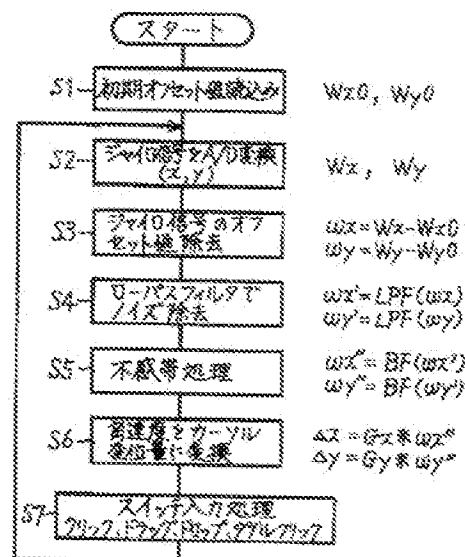 スタート
S1 初期オフセット値読込み Wx0, Wy0
S2 ジャイロ信号をA/D変換
(x,y) Wx, Wy
S3 ジャイロ信号のオフ
セット値 除去
ωx=Wx-Wx0
ωy=Wy-Wy0
S4 ローパスフィルタで
ノイズ除去
ωx'=LPF(ωx)
ωy'=LPF(ωy)
S5 不感帯処理
ωx"=BF(ωx')
ωy"=BF(ωy')
S6 角速度をカーソル
変位量に変換
Δx=Gx*ωx"
Δy=Gy*ωy"
S7 スイッチ入力処理
クリック,ドラッグ,ドロップ,ダブルクリック